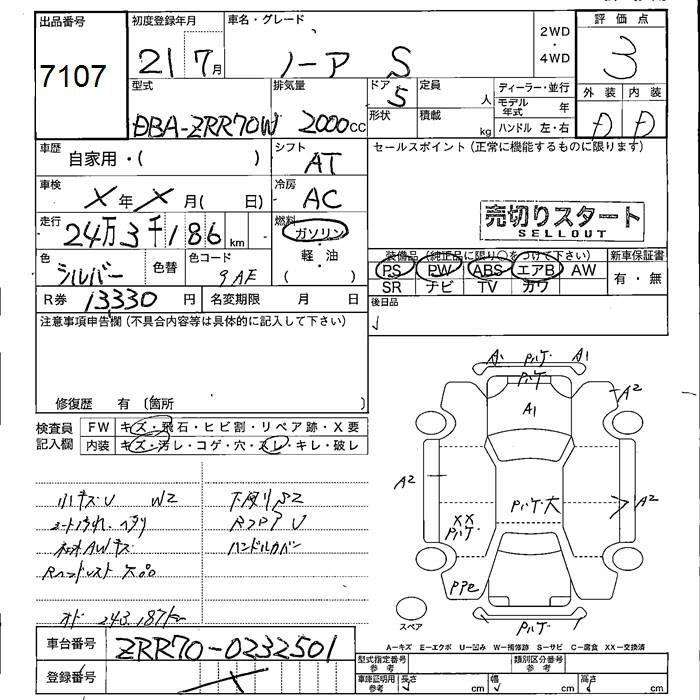 出品番号 初度登録年月 車名・グレード 2WD ・ 4WD 評価点
7107 21 7月 ノーア S 3
外装 内装
D D
型式 排気量 ドア 定員 人 ディーラー・並行
DBA-ZRR70W 2000cc 5 モデル年式 年
形状 積載 kg ハンドル 左・右
車歴 自家用・( ) シフト AT セールスポイント(正常に機能するものに限ります)
車検 X年X月( 日) 冷房 AC
売切りスタート
SELLOUT
走行 24万3千186km 燃料 ガソリン・軽・油
装備品(純正品に限り○をつけて下さい) 新車保証書
色 シルバー 色替 色コード 9AF
PS PW ABS エアB AW 有・無
SR ナビ TV カワ
R券 13330円 名変期限 月 日
後日品
注意事項申告欄(不具合内容等は具体的に記入して下さい)
修復歴 有〔箇所 〕
検査員記入欄 FW キズ・飛石・ヒビ割・リペア跡・X要
内装 キズ・汚レ・コゲ・穴・スレ・キレ・破レ
A1 パケ A1
パケ
A2
A1
A2
パケ大
A2
XX
パケ
PPe
パケ
スペア
小キズU W2 下廻りS2
ハンドルカバー
オド 243,187km
A=キズ E=エクボ U=凹み W=補修跡 S=サビ C=腐食 XX=交換済
車台番号 ZRR70-0232501
登録番号
型式指定番号 参考 類別区分番号 参考
車庫証明用 参考 長さ cm 幅 cm 高さ cm